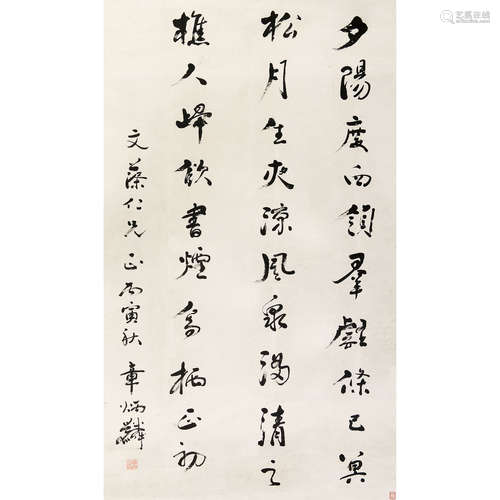 夕陽度西領羣壑條已冥
松月生夜涼風泉滿清之
樵人歸欲書煙鳥栖正初
文蔡仁兄正 丙寅秋 章炳麟